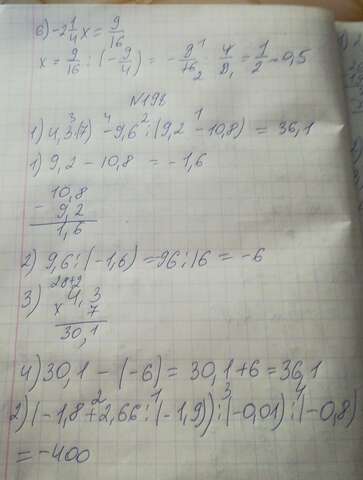 б) -2 1/4 x = 9/16
x = 9/16 : (- 9/4) = - 9/16 · 4/9 = 1/2 = 0,5
N198
1) 4,3·(7) - 9,6 : (9,2 - 10,8) = 36,1
1) 9,2 - 10,8 = -1,6
10,8
- 9,2
1,6
2) 9,6 : (-1,6) = 96 : 16 = -6
3) 4,3
x 7
30,1
4) 30,1 - (-6) = 30,1 + 6 = 36,1
2) (-1,8 + 2,66 : (-1,9)) : (-0,01) : (-0,8)
= -400